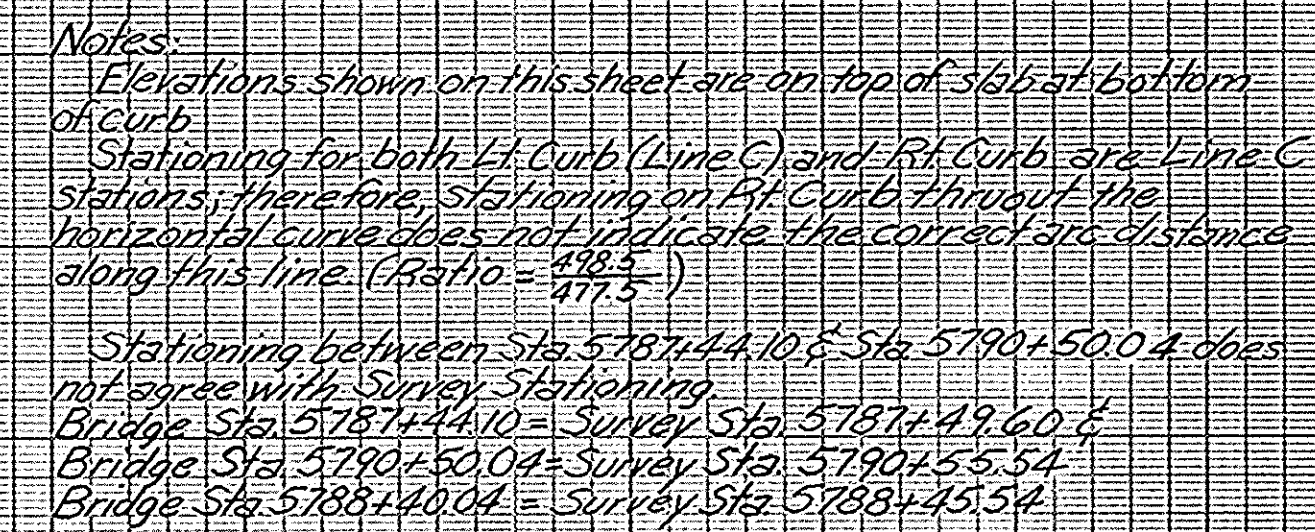 Notes:
Elevations shown on this sheet are on top of slab at bottom
of Curb
Stationing for both Lt. Curb (Line C) and Rt. Curb are Line C
stations; therefore, stationing on Rt. Curb thruout the
horizontal curve does not indicate the correct arc distance
along this line. (Ratio = 498.5/477.5)
Stationing between Sta. 5787+44.10 & Sta. 5790+50.04 does
not agree with Survey Stationing.
Bridge Sta. 5787+44.10 = Survey Sta. 5787+49.60 &
Bridge Sta. 5790+50.04 = Survey Sta. 5790+55.54
Bridge Sta. 5788+40.04 = Survey Sta. 5788+45.54